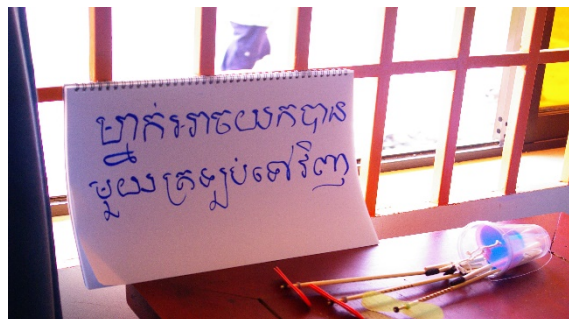 ម្នាក់អាចយកបាន
មួយត្រឡប់ទៅវិញ